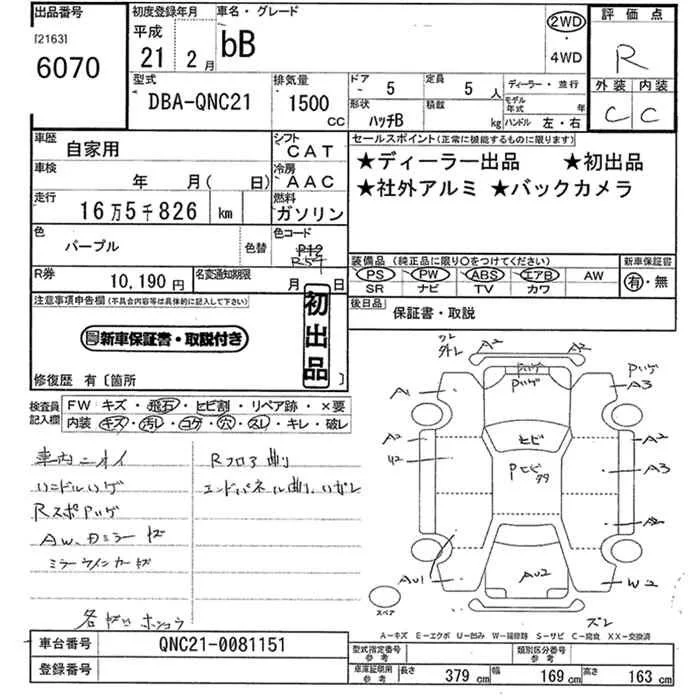 出品番号
[2163]
6070
初度登録年月
平成
21 年 2 月
車名・グレード
bB
2WD
・
4WD
評価点
R
外装 内装
C C
型式
DBA-QNC21
排気量
1500
CC
ドア
5
定員
5 人
ディーラー・並行
形状
ハッチB
積載
kg
モデル年式 年
ハンドル 左・右
車歴
自家用
シフト
CAT
車検
年 月( 日)
冷房
AAC
走行
16万5千826 km
燃料
ガソリン
色
パープル
色替
色コード
R54
R券
10,190円
名変通知期限
月 日
セールスポイント(正常に機能するものに限ります)
★ディーラー出品 ★初出品
★社外アルミ ★バックカメラ
装備品(純正品に限り○をつけてください)
新車保証書
PS PW ABS エアB AW
SR ナビ TV カワ
有・無
後日品
保証書・取説
注意事項申告欄(不具合内容等は具体的に記入して下さい)
新車保証書・取説付き
初出品
修復歴 有〔箇所 〕
検査員
記入欄
FW キズ・飛石・ヒビ割・リペア跡・×要
内装 キズ・汚レ・コゲ・穴・スレ・キレ・破レ
車内ニオイ
ハンドルハゲ
RスポPハゲ
AW、ドミラーキズ
ミラーウインカーキズ
Rフロア曲り
エンドパネル曲り、
A2
A2
Pハゲ
Pハゲ
A1
A3
A2
ヒビ
A2
Pヒビ
A3
A2
AU1
AU2
W2
スペア
ズレ
A-キズ E-エクボ U-凹み W-補修跡 S-サビ C-腐食 XX-交換済
車台番号
QNC21-0081151
登録番号
型式指定番号
参考
類別区分番号
参考
車庫証明用
参考
長さ 379 cm 幅 169 cm 高さ 163 cm